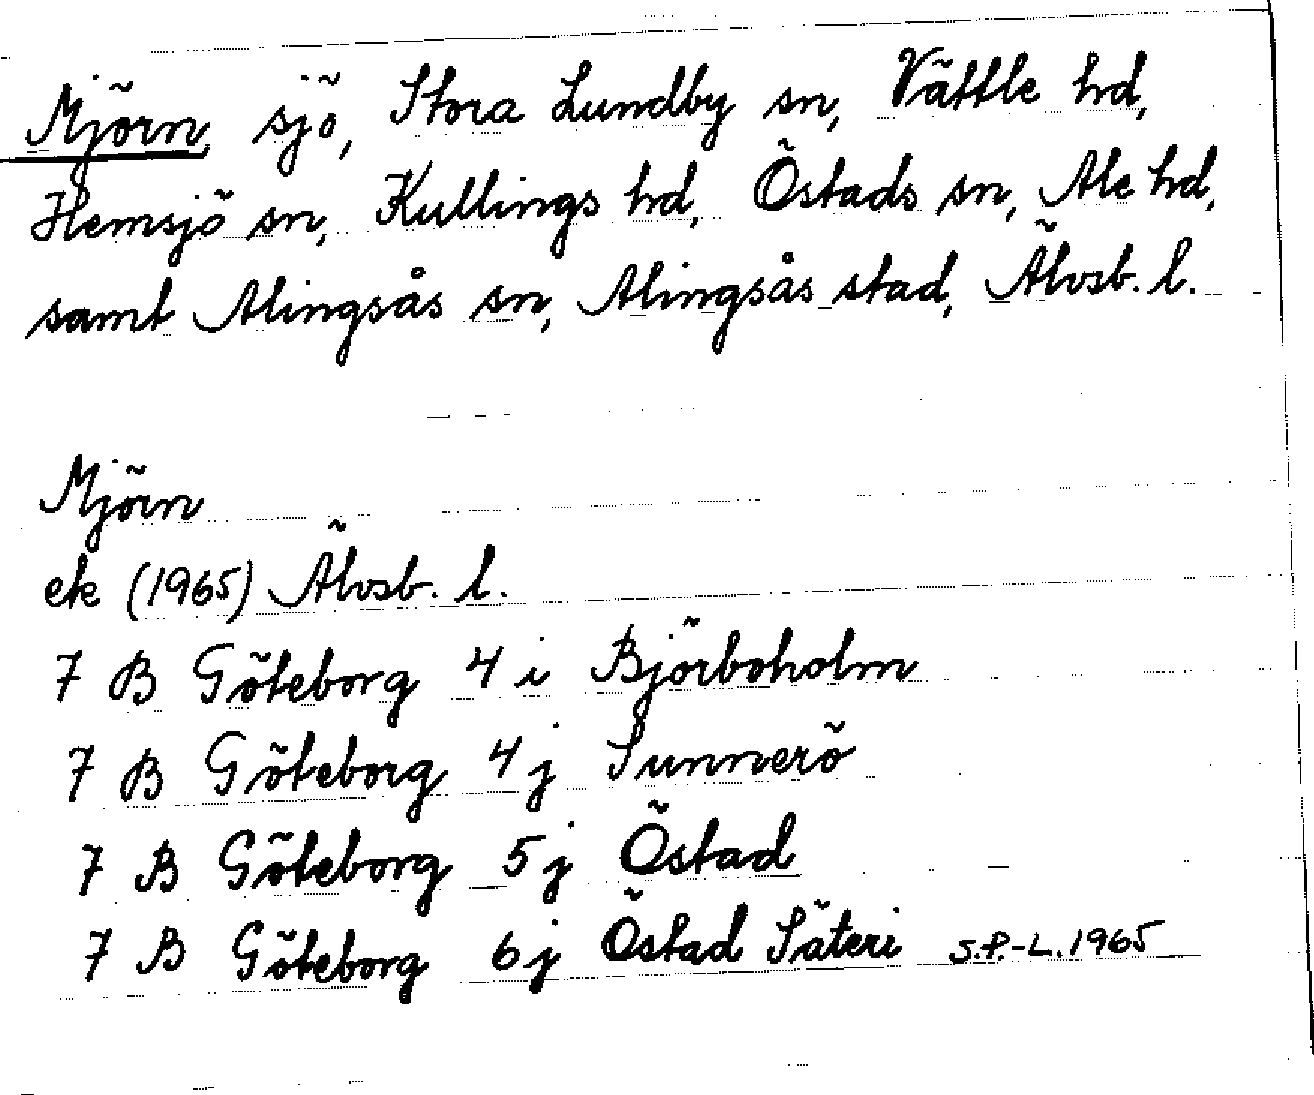 Mjörn, sjö, Stora Lundby sn, Vättle hd,
Hemsjö sn, Kullings hd, Östads sn, Ale hd,
samt Alingsås sn, Alingsås stad, Älvsb. l.
Mjörn
ek (1965) Älvsb. l.
7 B Göteborg 4 i Björboholm
7 B Göteborg 4 j Sunnerö
7 B Göteborg 5 j Östad
7 B Göteborg 6 j Östad Säteri S.P.-L. 1965